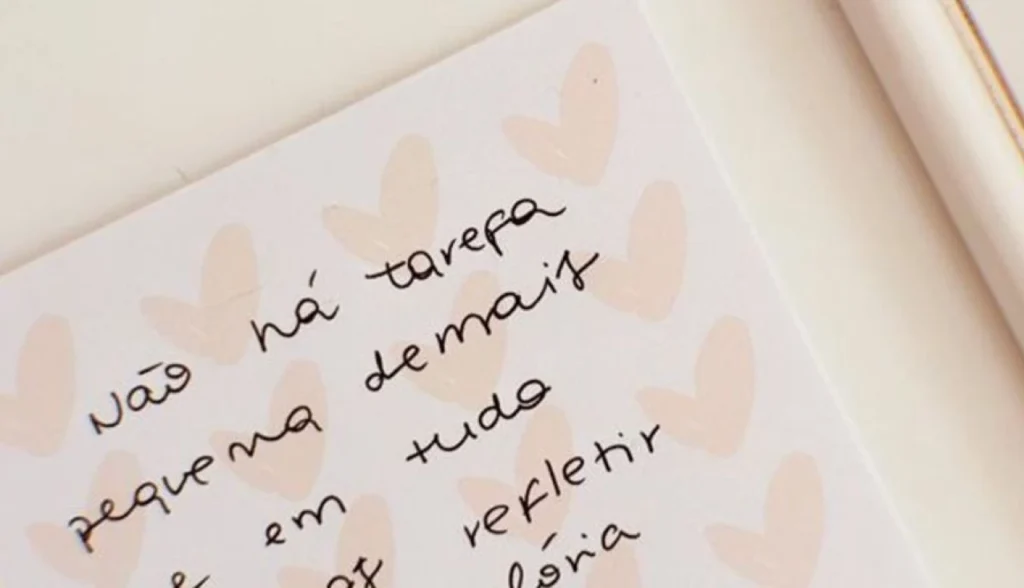 Não há tarefa
pequena demais
em tudo
refletir